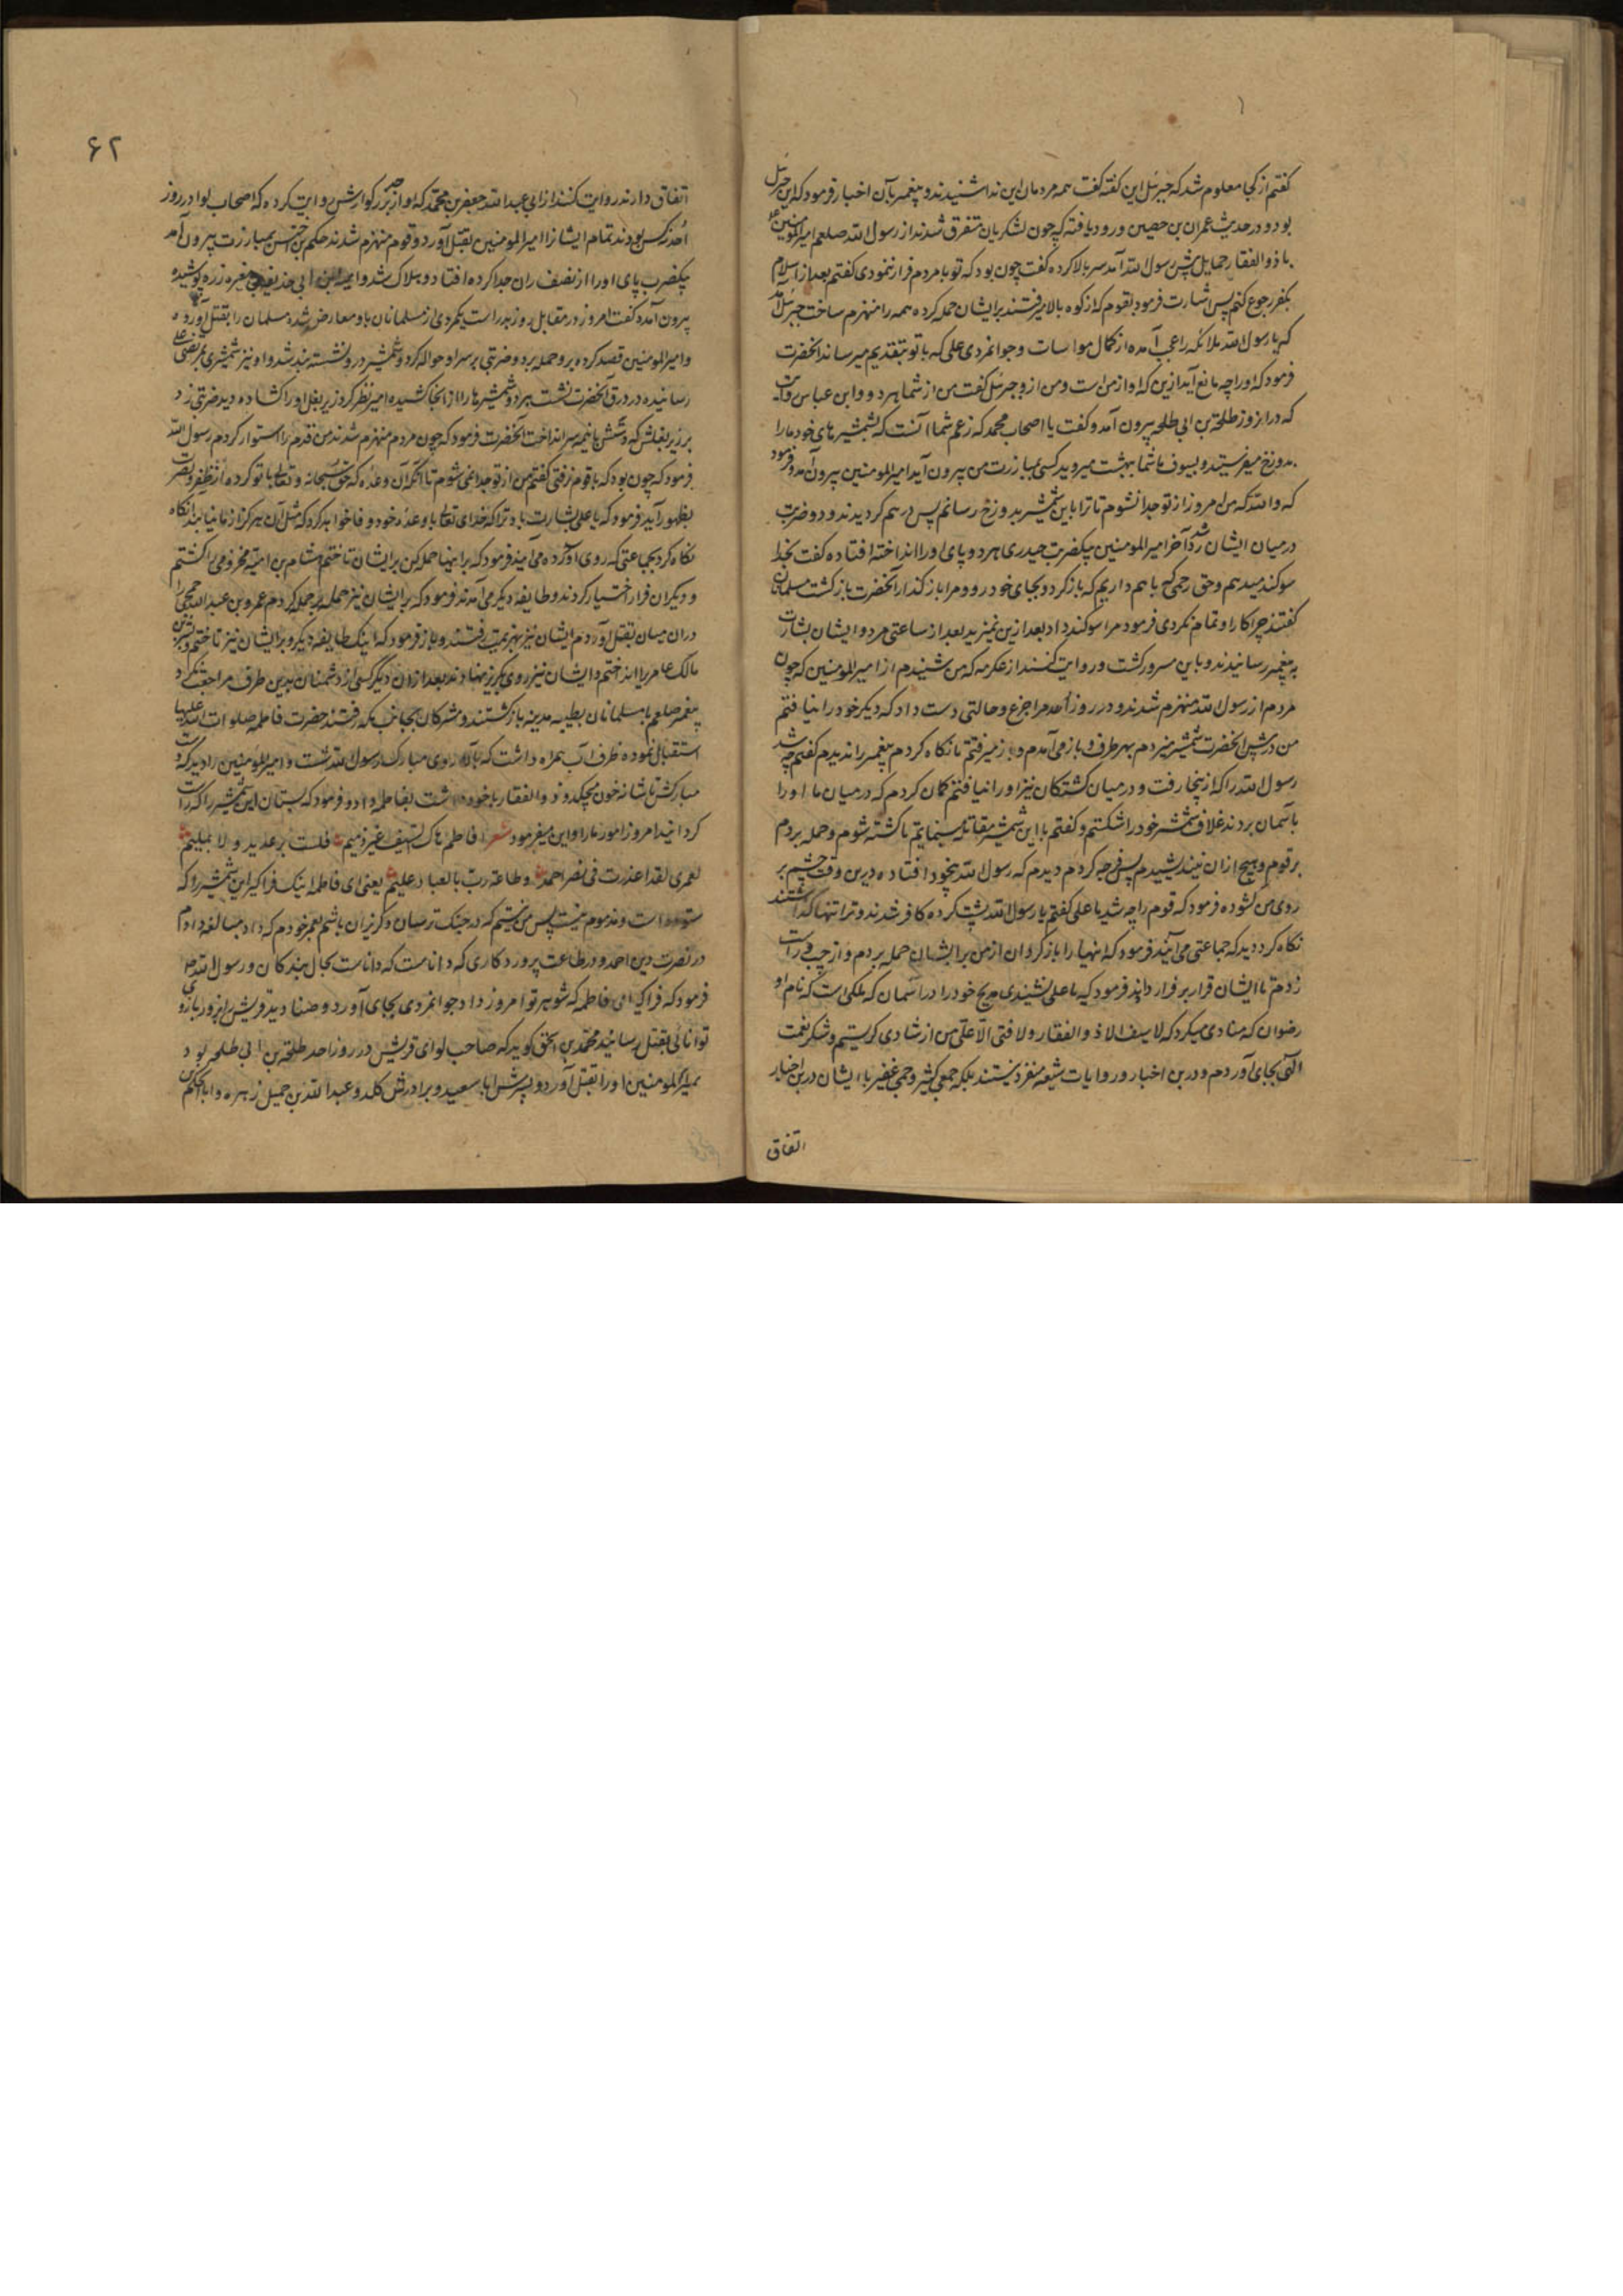 کفتم از کجا معلوم شد که جبرئیل این کفته کفت همه مردمان این ندا شنیدند و پیغمبر بآن اخبار فرمود که این جبرئیل
بود و در حدیث عمران بن حصین ورود یافته که چون لشکریان متفرق شدند از رسول الله صلعم امیرالمومنین ع
با ذوالفقار حمایل پیش رسول الله آمد سر بالا کرده کفت چون بود که تو با مردم فرار ننمودی کفتم بعد از اسلام
بکفر رجوع کنم پس اشارت فرمود بقوم که از کوه بالا میرفتند برایشان حمله کرده همه را منهزم ساخت جبرئیل آمد
که یا رسول الله ملائکه را عجب آمده از کمال مواسات و جوانمردی علی که با تو بتقدیم میرساند آنحضرت
فرمود که او را چه مانع آید ازین که او از من است و من ازو جبرئیل کفت من از شما هر دو و ابن عباس روایت
که در آنروز طلحة بن ابی طلحه بیرون آمد و کفت یا اصحاب محمد که زعم شما آنست که بشمشیرهای خود ما را
بدوزخ میفرستید و بسیوف ما شما ببهشت میروید کسی بمبارزت من بیرون آید امیرالمومنین بیرون آمد و فرمود
که والله که من امروز از تو جدا نشوم تا ترا باین شمشیر بدوزخ رسانم پس درهم کردیدند و دو ضربت
درمیان ایشان رد شد آخر امیرالمومنین بیکضربت حیدری هر دو پای او را انداخته افتاده کفت بخدا
سوکند میدهم و حق رحمی که باهم داریم که بازکرد و بجای خود رو و مرا بازکذار آنحضرت بازکشت مسلمانان
کفتند چرا کار او تمام نکردی فرمود مرا سوکند داد بعد ازین نمیزید بعد از ساعتی مرد و ایشان بشارت
به پیغمبر رسانیدند و باین مسرور کشت و روایت کنند از عکرمه که من شنیدم از امیرالمومنین که چون
مردم از رسول الله منهزم شدند در روز احد مرا جزع و حالتی دست داد که دیکر خود را نیافتم
من در پیش آنحضرت شمشیر میزدم بهر طرف و باز می آمدم و باز میرفتم تا نکاه کردم پیغمبر را ندیدم کفتم چه شد
رسول الله را که ازینجا رفت و درمیان کشتکان نیز او را نیافتم کمان کردم که درمیان ما او را
بآسمان بردند غلاف شمشیر خود را شکستم و کفتم با این شمشیر مقاتله مینمایم تا کشته شوم و حمله بردم
بر قوم و هیچ ازان نیندیشیدم پس فرجه کردم دیدم که رسول الله بیخود افتاده درین وقت چشم بر
روی من کشوده فرمود که قوم را چه شد یا علی کفتم یا رسول الله پشت کرده کافر شدند و ترا تنها کذاشتند
نکاه کرد دید که جماعتی می آیند فرمود که اینها را بازکردان از من برایشان حمله بردم و از چپ و راست
زدم تا ایشان قرار بر فرار دادند فرمود که یا علی نشنیدی مدیح خود را در آسمان که ملکی است که نام او
رضوان که منادی میکرد که لا سیف الا ذوالفقار و لا فتی الا علی من از شادی کریستم و شکر نعمت
الهی بجای آوردم و درین اخبار و روایات شیعه منفرد نیستند بلکه جمعی کثیر و جمی غفیر با ایشان درین اخبار
اتفاق
۶۲
اتفاق دارند روایت کنند از ابی عبدالله جعفر بن محمد که او از جد بزرکوارش روایت کرده که اصحاب لوا در روز
احد نه کس بودند تمام ایشانرا امیرالمومنین بقتل آورد و قوم منهزم شدند حکم بن اخنس بمبارزت بیرون آمد
بیکضرب پای او را از نصف ران جدا کرده افتاد و هلاک شد و امیة ابن ابی حذیفة بن مغیره زره پوشیده
بیرون آمده کفت امروز در مقابل روز بدر است یکمردی از مسلمانان باو معارض شده مسلمان را بقتل آورده
و امیرالمومنین قصد کرده برو حمله برد و ضربتی بر سر او حواله کرد و شمشیر درو نشسته بند شد و او نیز شمشیری بمرتضی علی
رسانیده در درق آنحضرت نشست هر دو شمشیرها را از آنجا کشیده امیر نظر کرد زیر بغل او را کشاده دید ضربتی زد
بر زیر بغلش که دستش با نیمه سر انداخت آنحضرت فرمود که چون مردم منهزم شدند من قدم را استوار کردم رسول الله
فرمود که چون بود که با قوم نرفتی کفتم من از تو جدا نمی شوم تا آنکه آن وعده که حق سبحانه و تعالی با تو کرده از ظفر و نصرت
بظهور آید فرمود که یا علی بشارت باد ترا که خدای تعالی با وعده خود وفا خواهد کرد که مثل آن هرکز از ما نیابند آنکاه
نکاه کرد بجماعتی که روی آورده می آیند فرمود که برینها حمله کن برایشان تاختم هشام بن امیه مخزومی را کشتم
و دیکران فرار اختیار کردند و طایفه دیکری آمدند فرمود که برایشان نیز حمله بر حمله کردم عمرو بن عبدالله جمحی را
دران میان بقتل آوردم ایشان نیز بهزیمت رفتند و باز فرمود که اینک طایفه دیکر و برایشان نیز تاختم و بشر بن
مالک عامر را انداختم و ایشان نیز روی بکریز نهادند بعد ازان دیکر کسی از دشمنان بدین طرف مراجعت نکرد
پیغمبر صلعم با مسلمانان بطیبه مدینه بازکشتند و مشرکان بجانب مکه رفتند حضرت فاطمه صلوات الله علیها
استقبال نموده ظرف آب همراه داشت که بآن روی مبارک رسول الله شست و امیرالمومنین را دید که دست
مبارکش تا شانه خون میچکد و ذوالفقار با خود داشت بفاطمه داد و فرمود که بستان این شمشیر را که راست
کردانید امروز امور ما را و این میفرمود شعر افاطم هاک السیف غیر ذمیم فلست برعدید و لا بملیم
لعمری لقد اعذرت فی نصر احمد و طاعة رب بالعباد علیم یعنی ای فاطمه اینک فراکیر این شمشیر را که
ستوده است و مذموم نیست پس من نیستم که در جنک ترسان و کریزان باشم بعمر خودم که داد مبالغه دادم
در نصرت دین احمد و در طاعت پروردکاری که داناست که داناست بحال بندکان و رسول الله ص
فرمود که فراکیر ای فاطمه که شوهر تو امروز داد جوانمردی بجای آورد و صنادید قریش را بزور بازوی
توانائی بقتل رسانید محمد بن اسحق کوید که صاحب لوای قریش در روز احد طلحة بن ابی طلحه بود
امیرالمومنین او را بقتل آورد و پسرش ابا سعید و برادرش کلده و عبدالله بن جمیل زهره و ابا الحکم بن